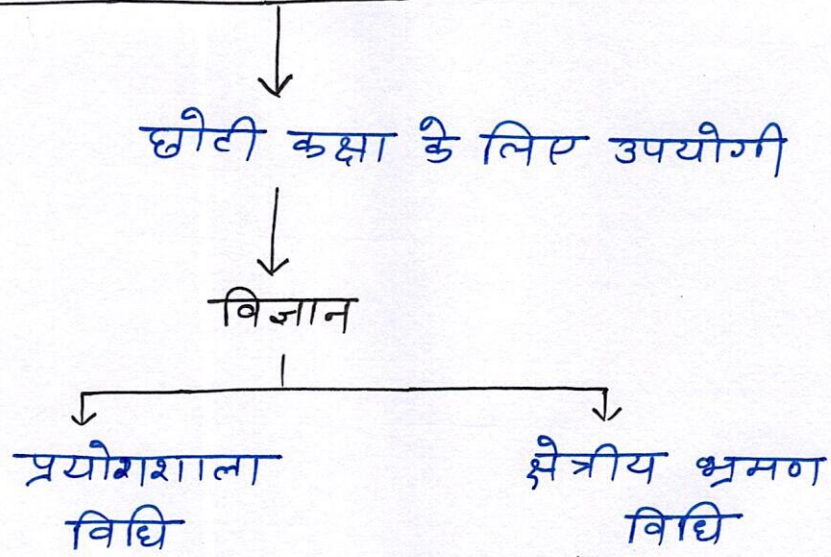 छोटी कक्षा के लिए उपयोगी
विज्ञान
प्रयोगशाला क्षेत्रीय भ्रमण
विधि विधि